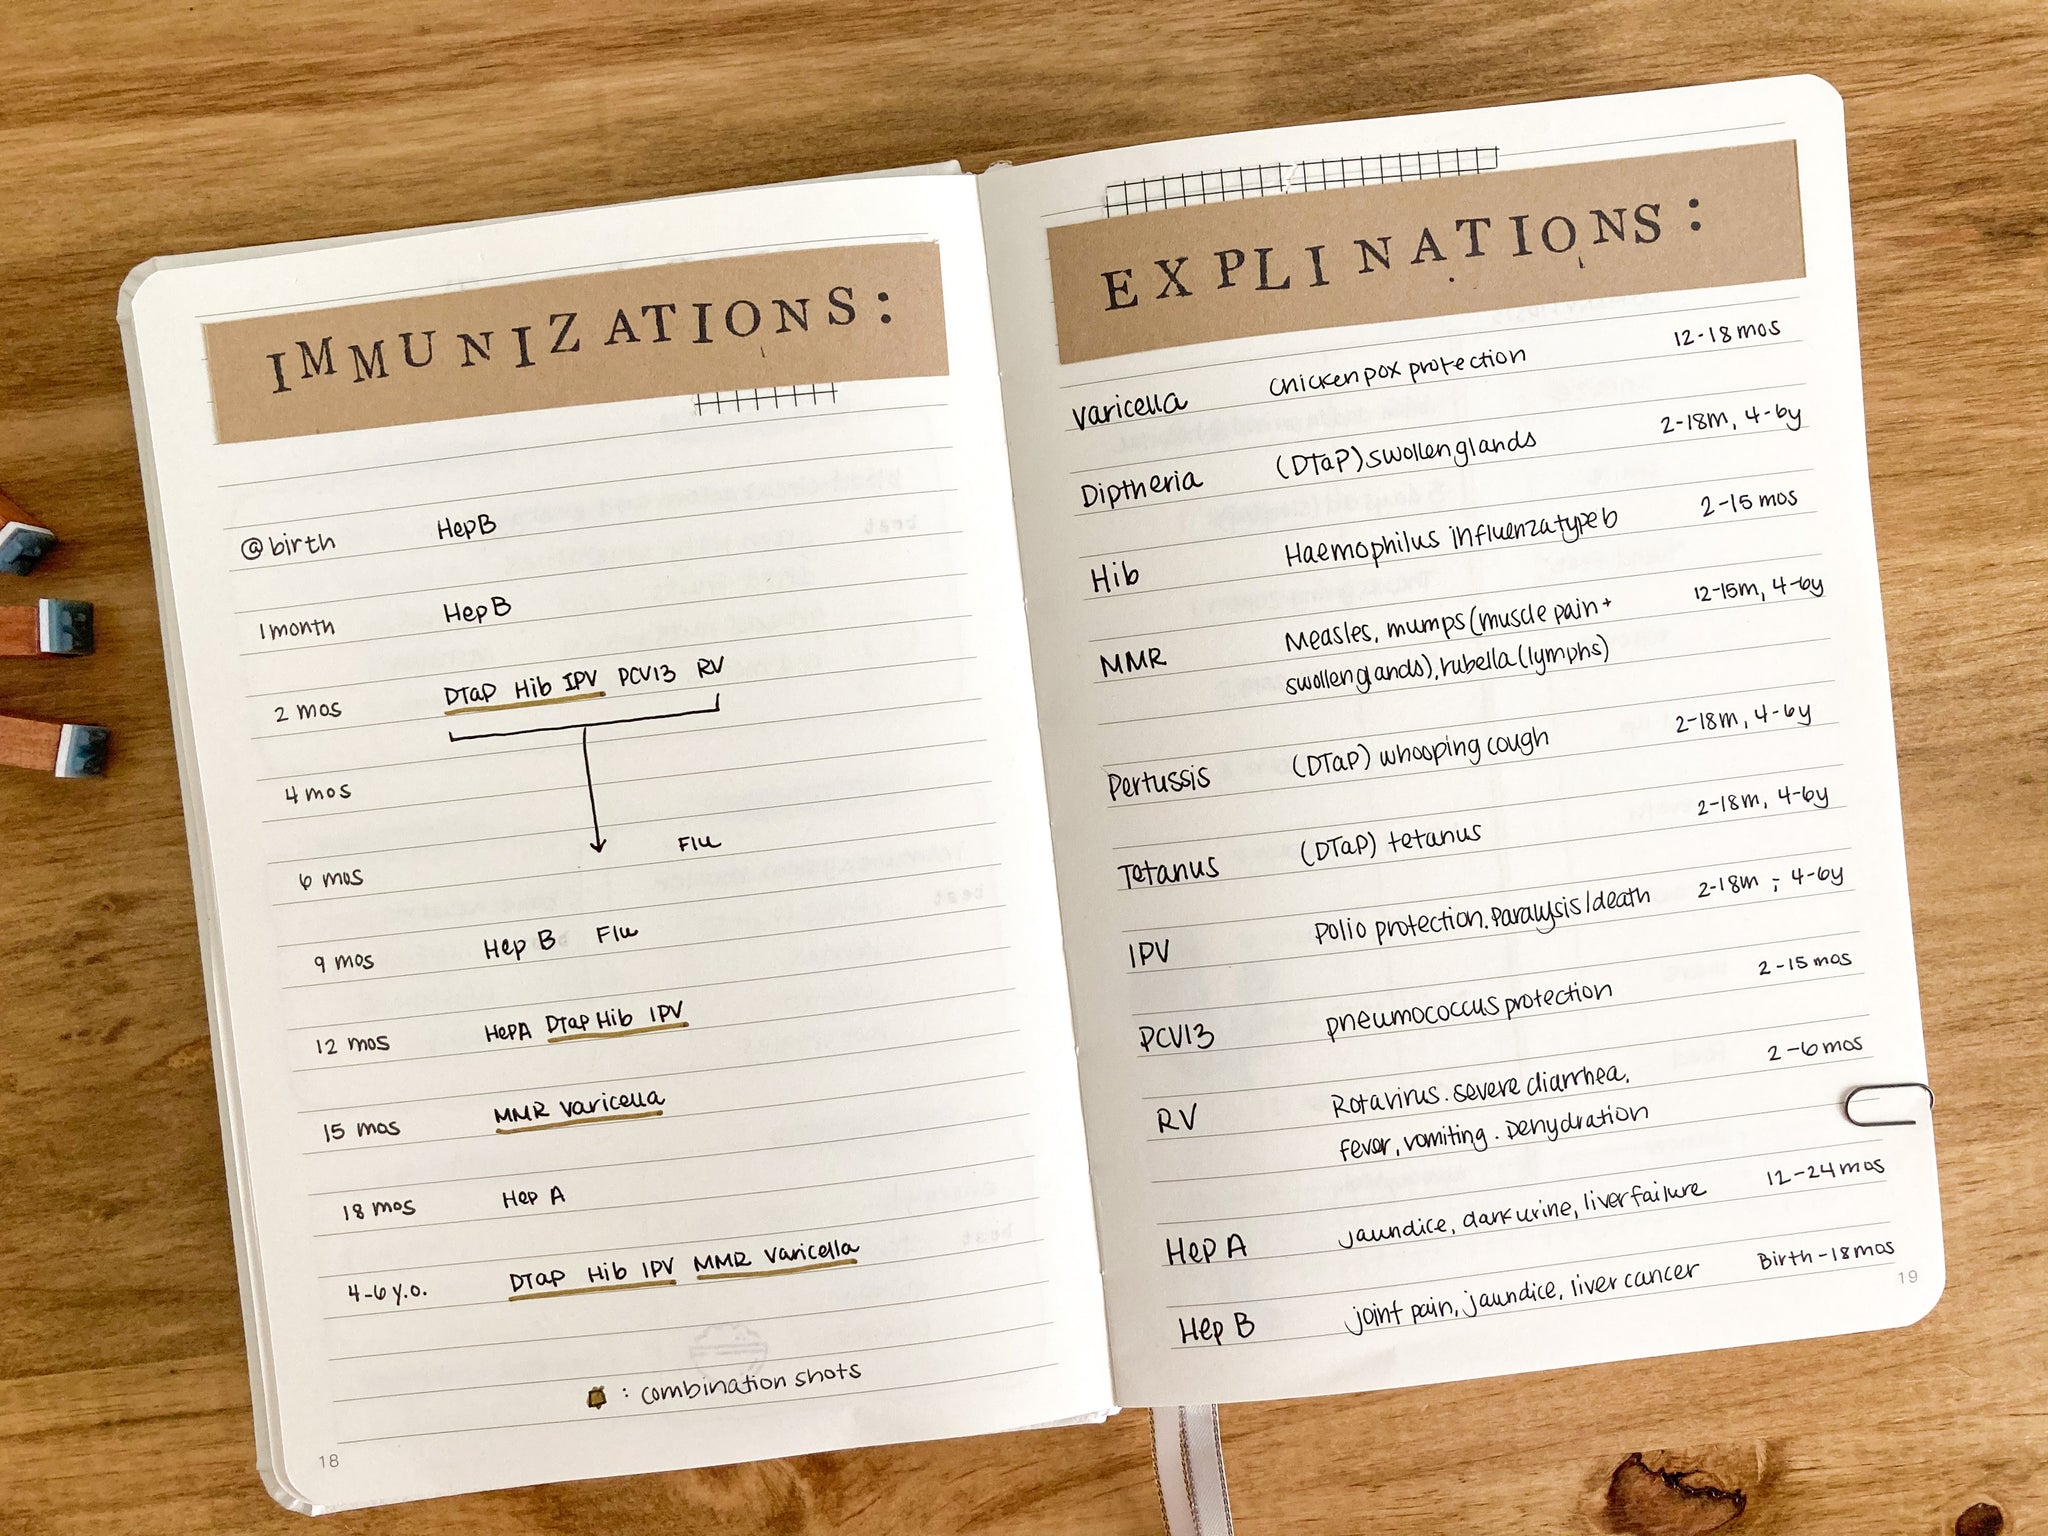 IMMUNIZATIONS:
@birth HepB
1 month HepB
2 mos DTaP Hib IPV PCV13 RV
4 mos
Flu
6 mos
9 mos Hep B Flu
12 mos HepA DTap Hib IPV
15 mos MMR varicella
18 mos Hep A
4-6 y.o. DTap Hib IPV MMR Varicella
: combination shots
18
EXPLINATIONS:
Varicella Chickenpox protection 12-18 mos
Diptheria (DTaP) swollen glands 2-18m, 4-6y
Hib Haemophilus influenza type b 2-15 mos
MMR Measles, mumps (muscle pain + 12-15m, 4-6y
swollen glands), rubella (lymphs)
Pertussis (DTaP) whooping cough 2-18m, 4-6y
Tetanus (DTaP) tetanus 2-18m, 4-6y
IPV Polio protection. Paralysis/death 2-18m ; 4-6y
PCV13 pneumococcus protection 2-15 mos
RV Rotavirus. severe diarrhea, 2-6 mos
fever, vomiting. Dehydration
Hep A jaundice, dark urine, liver failure 12-24 mos
Hep B joint pain, jaundice, liver cancer Birth-18 mos
19